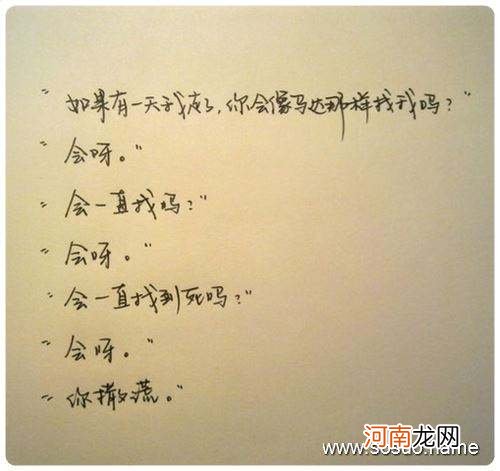 "如果有一天我走了,你会像马达那样找我吗?"
"会呀。"
"会一直找吗?"
"会呀。"
"会一直找到死吗?"
"会呀。"
"你撒谎。"
河南龙网
www.sosuo.name